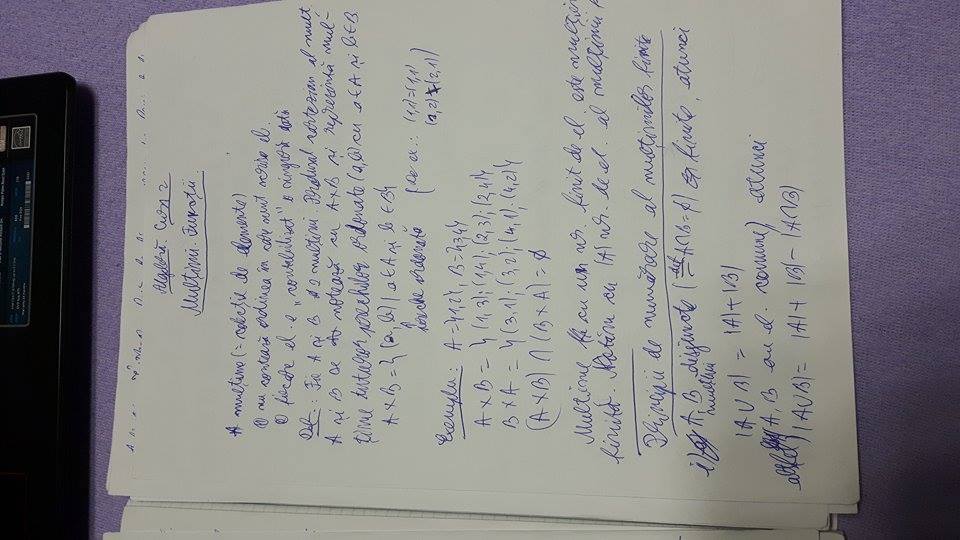 Algebră Curs 2
Mulțimi. Funcții
A mulțime (= colecție de elemente)
nu contează ordinea în care sunt scrise el.
fiecare el. e "contabilizat" o singură dată
Def.: Fie A și B 2 mulțimi Produsul cartezian al mulț
A și B se notează cu A×B și reprezintă mul-
țimea tuturor perechilor ordonate (a,b) cu a∈A și b∈B
A×B = {(a,b) | a∈A și b∈B}
pereche ordonată
(1,2)≠(2,1)
Exemplu: A={1,2}, B={3,4}
A×B = {(1,3); (1,4); (2,3); (2,4)}
B×A = {(3,1); (3,2); (4,1); (4,2)}
(A×B) ∩ (B×A) = ∅
Mulțime cu un nr. finit de el. este mulțim
finită. Notăm cu |A| nr. de el. al mulțimii
Principii de numărare al mulțimilor finite
i) A, B disjuncte (def A∩B = ∅) finite, atunci
mulțimi
|A∪B| = |A| + |B|
altfel A, B au el. comune) atunci
|A∪B| = |A| + |B| - |A∩B|